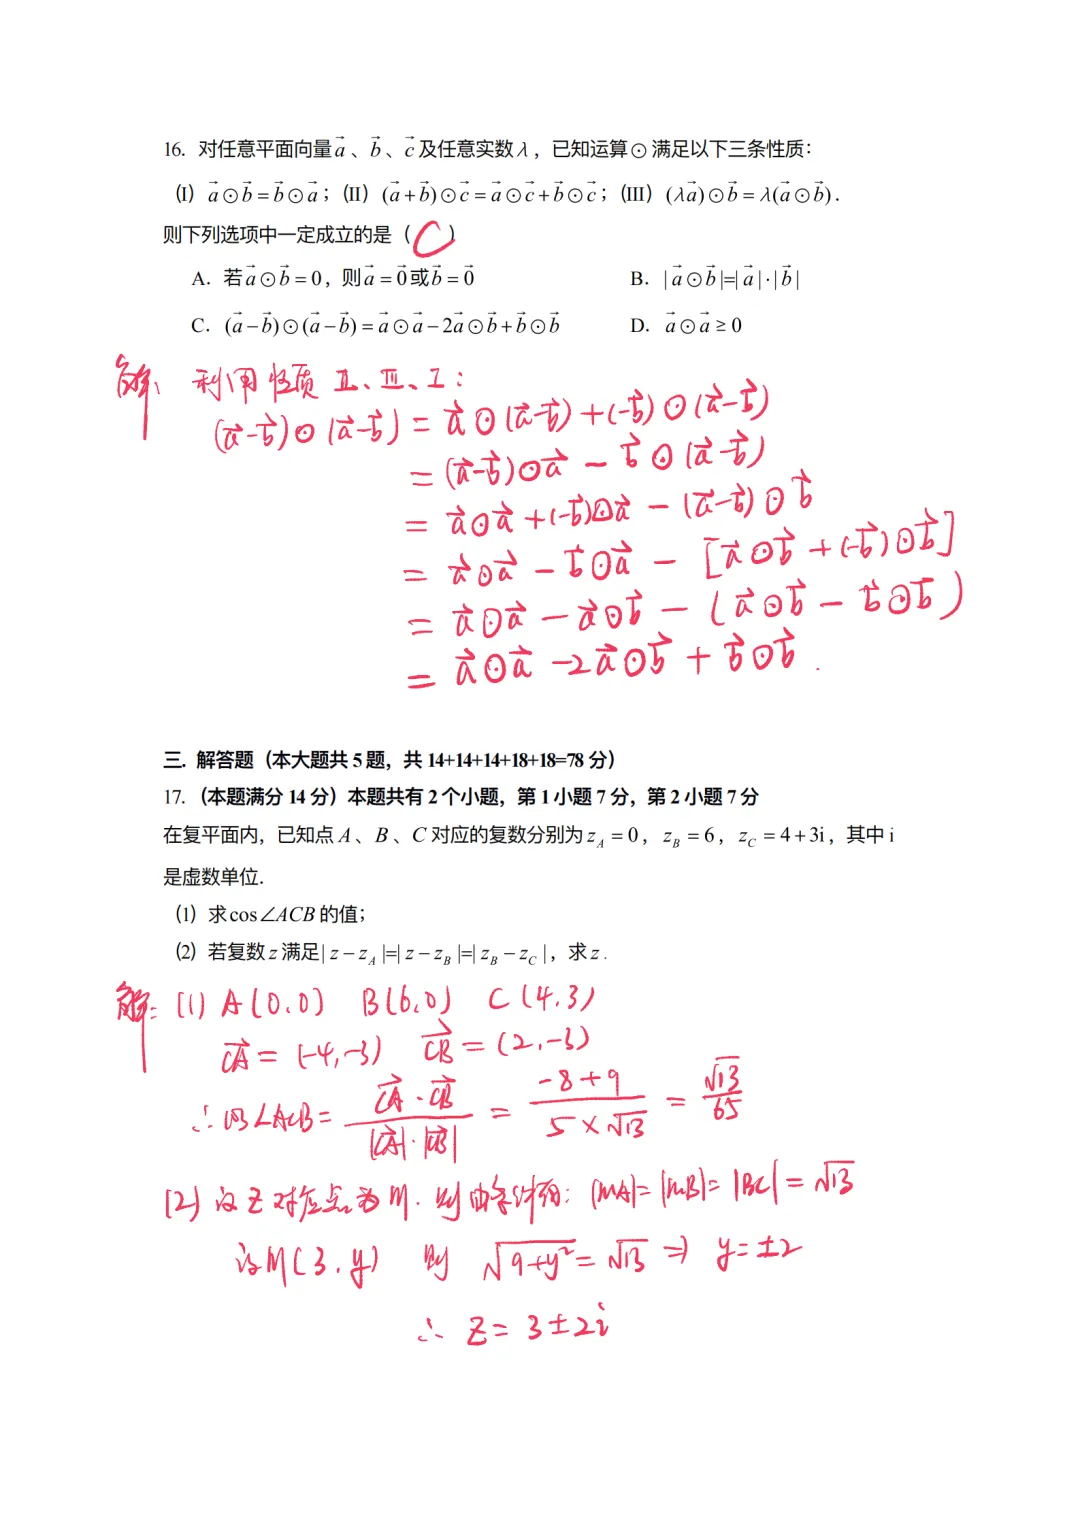 16. 对任意平面向量 a⃗ 、b⃗ 、c⃗ 及任意实数 λ ，已知运算 ⊙ 满足以下三条性质：
(Ⅰ) a⃗⊙b⃗ = b⃗⊙a⃗；(Ⅱ) (a⃗+b⃗)⊙c⃗ = a⃗⊙c⃗+b⃗⊙c⃗；(Ⅲ) (λa⃗)⊙b⃗ = λ(a⃗⊙b⃗).
则下列选项中一定成立的是（ C ）
A. 若 a⃗⊙b⃗ = 0，则 a⃗ = 0⃗ 或 b⃗ = 0⃗ B. |a⃗⊙b⃗|=|a⃗|·|b⃗|
C. (a⃗−b⃗)⊙(a⃗−b⃗) = a⃗⊙a⃗−2a⃗⊙b⃗+b⃗⊙b⃗ D. a⃗⊙a⃗ ≥ 0
解: 利用性质 Ⅱ、Ⅲ、Ⅰ:
(a⃗−b⃗)⊙(a⃗−b⃗) = a⃗⊙(a⃗−b⃗)+(−b⃗)⊙(a⃗−b⃗)
= (a⃗−b⃗)⊙a⃗ − b⃗⊙(a⃗−b⃗)
= a⃗⊙a⃗ +(−b⃗)⊙a⃗ − (a⃗−b⃗)⊙b⃗
= a⃗⊙a⃗ − b⃗⊙a⃗ − [a⃗⊙b⃗ +(−b⃗)⊙b⃗]
= a⃗⊙a⃗ − a⃗⊙b⃗ − (a⃗⊙b⃗ − b⃗⊙b⃗)
= a⃗⊙a⃗ −2a⃗⊙b⃗ + b⃗⊙b⃗ .
三. 解答题（本大题共 5 题，共 14+14+14+18+18=78 分）
17. （本题满分 14 分）本题共有 2 个小题，第 1 小题 7 分，第 2 小题 7 分
在复平面内，已知点 A 、B 、C 对应的复数分别为 z_A = 0，z_B = 6，z_C = 4+3i，其中 i
是虚数单位.
(1) 求 cos∠ACB 的值；
(2) 若复数 z 满足 |z−z_A|=|z−z_B|=|z_B−z_C|，求 z .
解: (1) A(0,0) B(6,0) C(4,3)
CA⃗ = (−4,−3) CB⃗ = (2,−3)
∴ cos∠ACB = (CA⃗·CB⃗)/(|CA⃗|·|CB⃗|) = (−8+9)/(5×√13) = √13/65
(2) 设 z 对应点为 M. 则由条件有: |MA|=|MB|=|BC|=√13
设M(3,y) 则 √(9+y²) = √13 ⇒ y=±2
∴ z = 3±2i